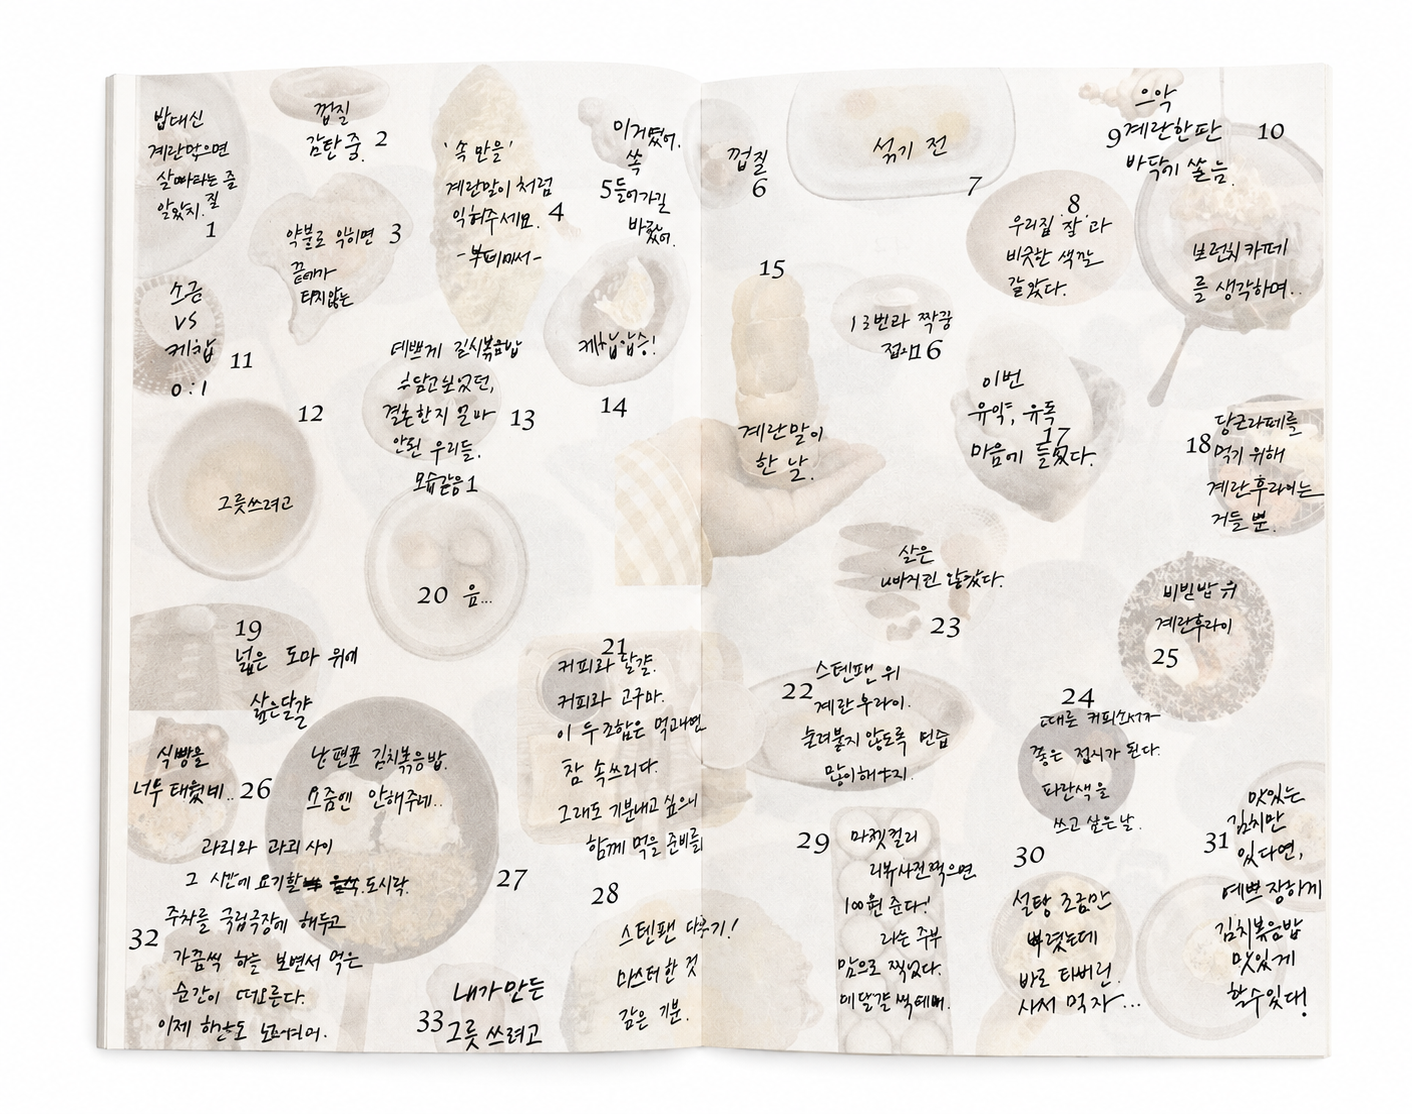 밥대신
계란먹으면
살빠라는 줄
알았지. 질
1
껍질
감탄중. 2
'속 만을'
계란말이 처럼
익혀주세요. 4
약불로 익히면 3
끝에가
타지않는
이거였어.
쏙
5 들어가길
바랬어.
껍질
6
섞기 전
7
8
우리집 '쌀'과
비슷한 색깔
같았다.
으악
9 계란한판 10
바닥에 쏟음.
보런치 카페
를 생각하며..
소금
vs
케찹
0:1
11
12
그릇쓰려고
예쁘게 김치볶음밥
담고싶었던,
결혼한지 얼마 13
안된 우리들.
모습같음 1
케찹압승!
14
15
계란말이
한 날.
13번과 짝꿍
접시 16
이번
유약, 유독
17
마음에 들었다.
당근라페를
18 먹기 위해
계란후라이는
거들 뿐.
20 음...
19
넓은 도마 위에
삶은달걀
21
커피와 달걀.
커피와 고구마.
이 두조합은 먹고나면
참 속쓰리다.
그래도 기분내고 싶으니
함께 먹을 준비를
삶은
23
스텐팬 위
22 계란후라이.
눌러붙지 않도록 연습
많이해야지.
비빔밥 위
계란후라이
25
24
때론 커피소서가
좋은 접시가 된다.
파란색을
쓰고 싶은 날.
식빵을
너무 태웠네.. 26
남편표 김치볶음밥.
요즘엔 안해주네..
27
과리와 과리 사이
그 시간에 요기할 도시락.
32 주차를 국립극장에 해두고
가끔씩 하늘 보면서 먹은
순간이 떠오른다.
이제 하산도
내가만든
33 그릇 쓰려고
28
스텐팬 다루기!
마스터한 것
같은 기분.
29 마켓컬리
리뷰사진찍으면
100원 준다!
라는 주부
맘으로 찍었다.
30
설탕 조금만
뿌렸는데
바로 타버린.
사서 먹자...
맛있는
31 김치만
있다면,
예쁘장하게
김치볶음밥
맛있게
할수있다!